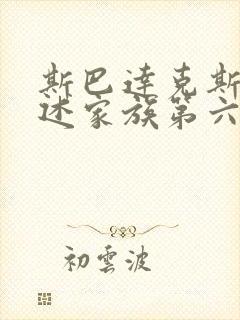 斯巴達克斯
述家族第六
初雲波